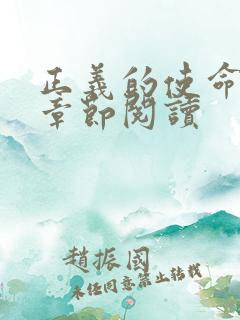 正義的使命
章節閱讀
趙振國
未經同意禁止轉載